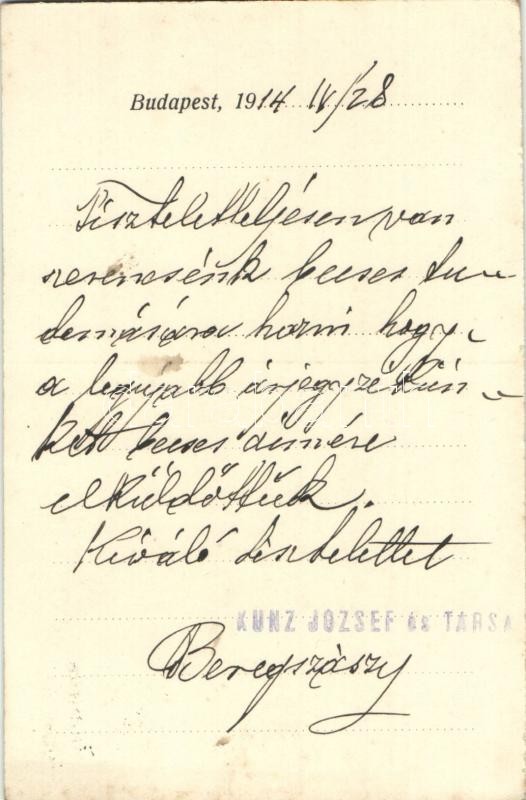 Budapest, 1914 IV/28
Tiszteletteljesen van
szerencsénk becses tu-
domására hozni hogy
a legujabb árjegyzékün-
ket becses címére
elküldöttük.
Kiváló tisztelettel
KUNZ JÓZSEF és TÁRSA
Beregszászy